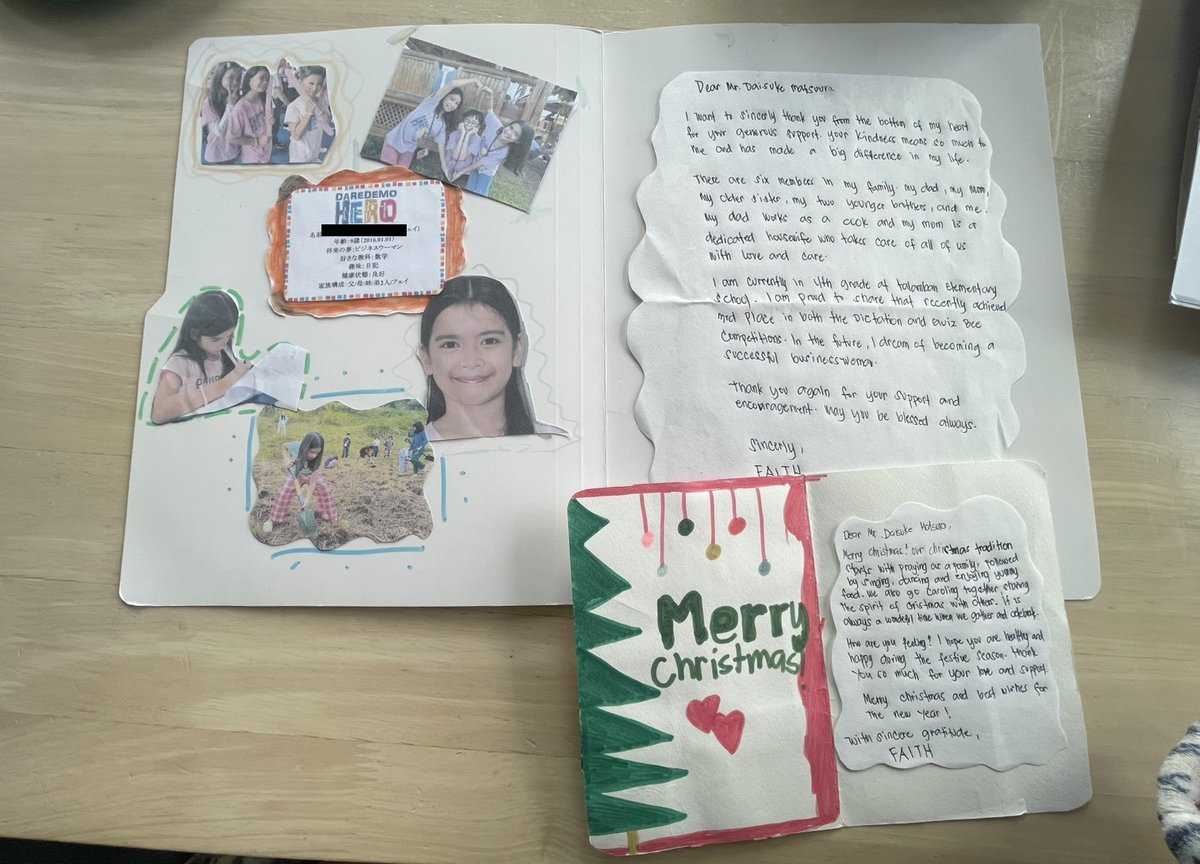 DAREDEMO
HERO
名前
ェイ)
年齢:9歳 (2016.01.01)
将来の夢:ビジネスウーマン
好きな教科:数学
趣味:日記
健康状態:良好
家族構成:父/母/姉/弟2人/フェイ
Dear Mr. Daisuke Matsuura
I want to sincerely thank you from the bottom of my heart
for your generous support. your kindness means so much to
me and has made a big difference in my life.
There are six members in my family. my dad, my mom
my older sister, my two younger brothers, and me.
my dad works as a cook and my mom is a
dedicated housewife who takes care of all of us
with love and care.
I am currently in 4th grade at talamban Elementary
School. I am proud to share that recently achieved
3rd Place in both the Dictation and Quiz Bee
Competitions. In the future, I dream of becoming a
successful businesswoman.
Thank you again for your support and
encouragement. May you be blessed always.
Sincerely,
FAITH
Merry
Christmas!
Dear Mr. Daisuke
Merry Christmas! our christmas tradition
starts with praying as a family, followed
by singing, dancing and enjoying yummy
food. we also go caroling together, sharing
the spirit of christmas with others. It is
always a wonderful time when we gather and celebrate.
How are you feeling? I hope you are healthy and
happy during the festive season. thank
you so much for your love and support
Merry christmas and best wishes for
the new year!
with sincere gratitude,
FAITH